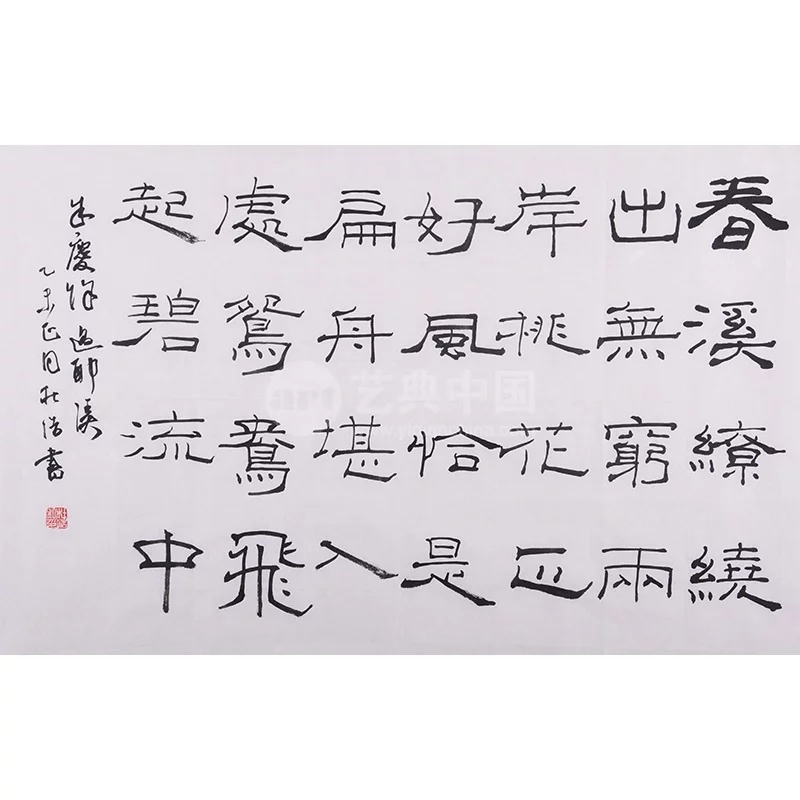 春溪繚繞
出無窮兩
岸桃花正
好風恰是
扁舟堪入
處鴛鴦飛
起碧流中
朱慶餘過耶溪
乙未正月杜浩書
art 艺典中国